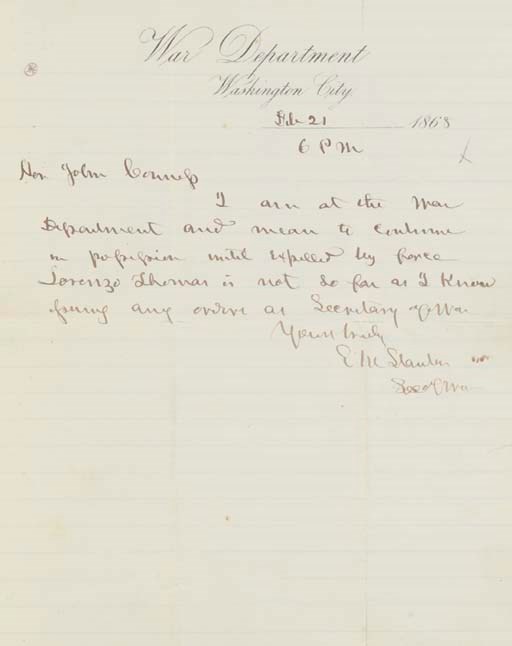 War Department
Washington City
Feb 21 1868
6 P M
Hon John Conness
I am at the War
Department and mean to continue
in possession until expelled by force
Lorenzo Thomas is not so far as I know
issuing any orders as Secretary of War
Yours truly
E M Stanton
Sec of War